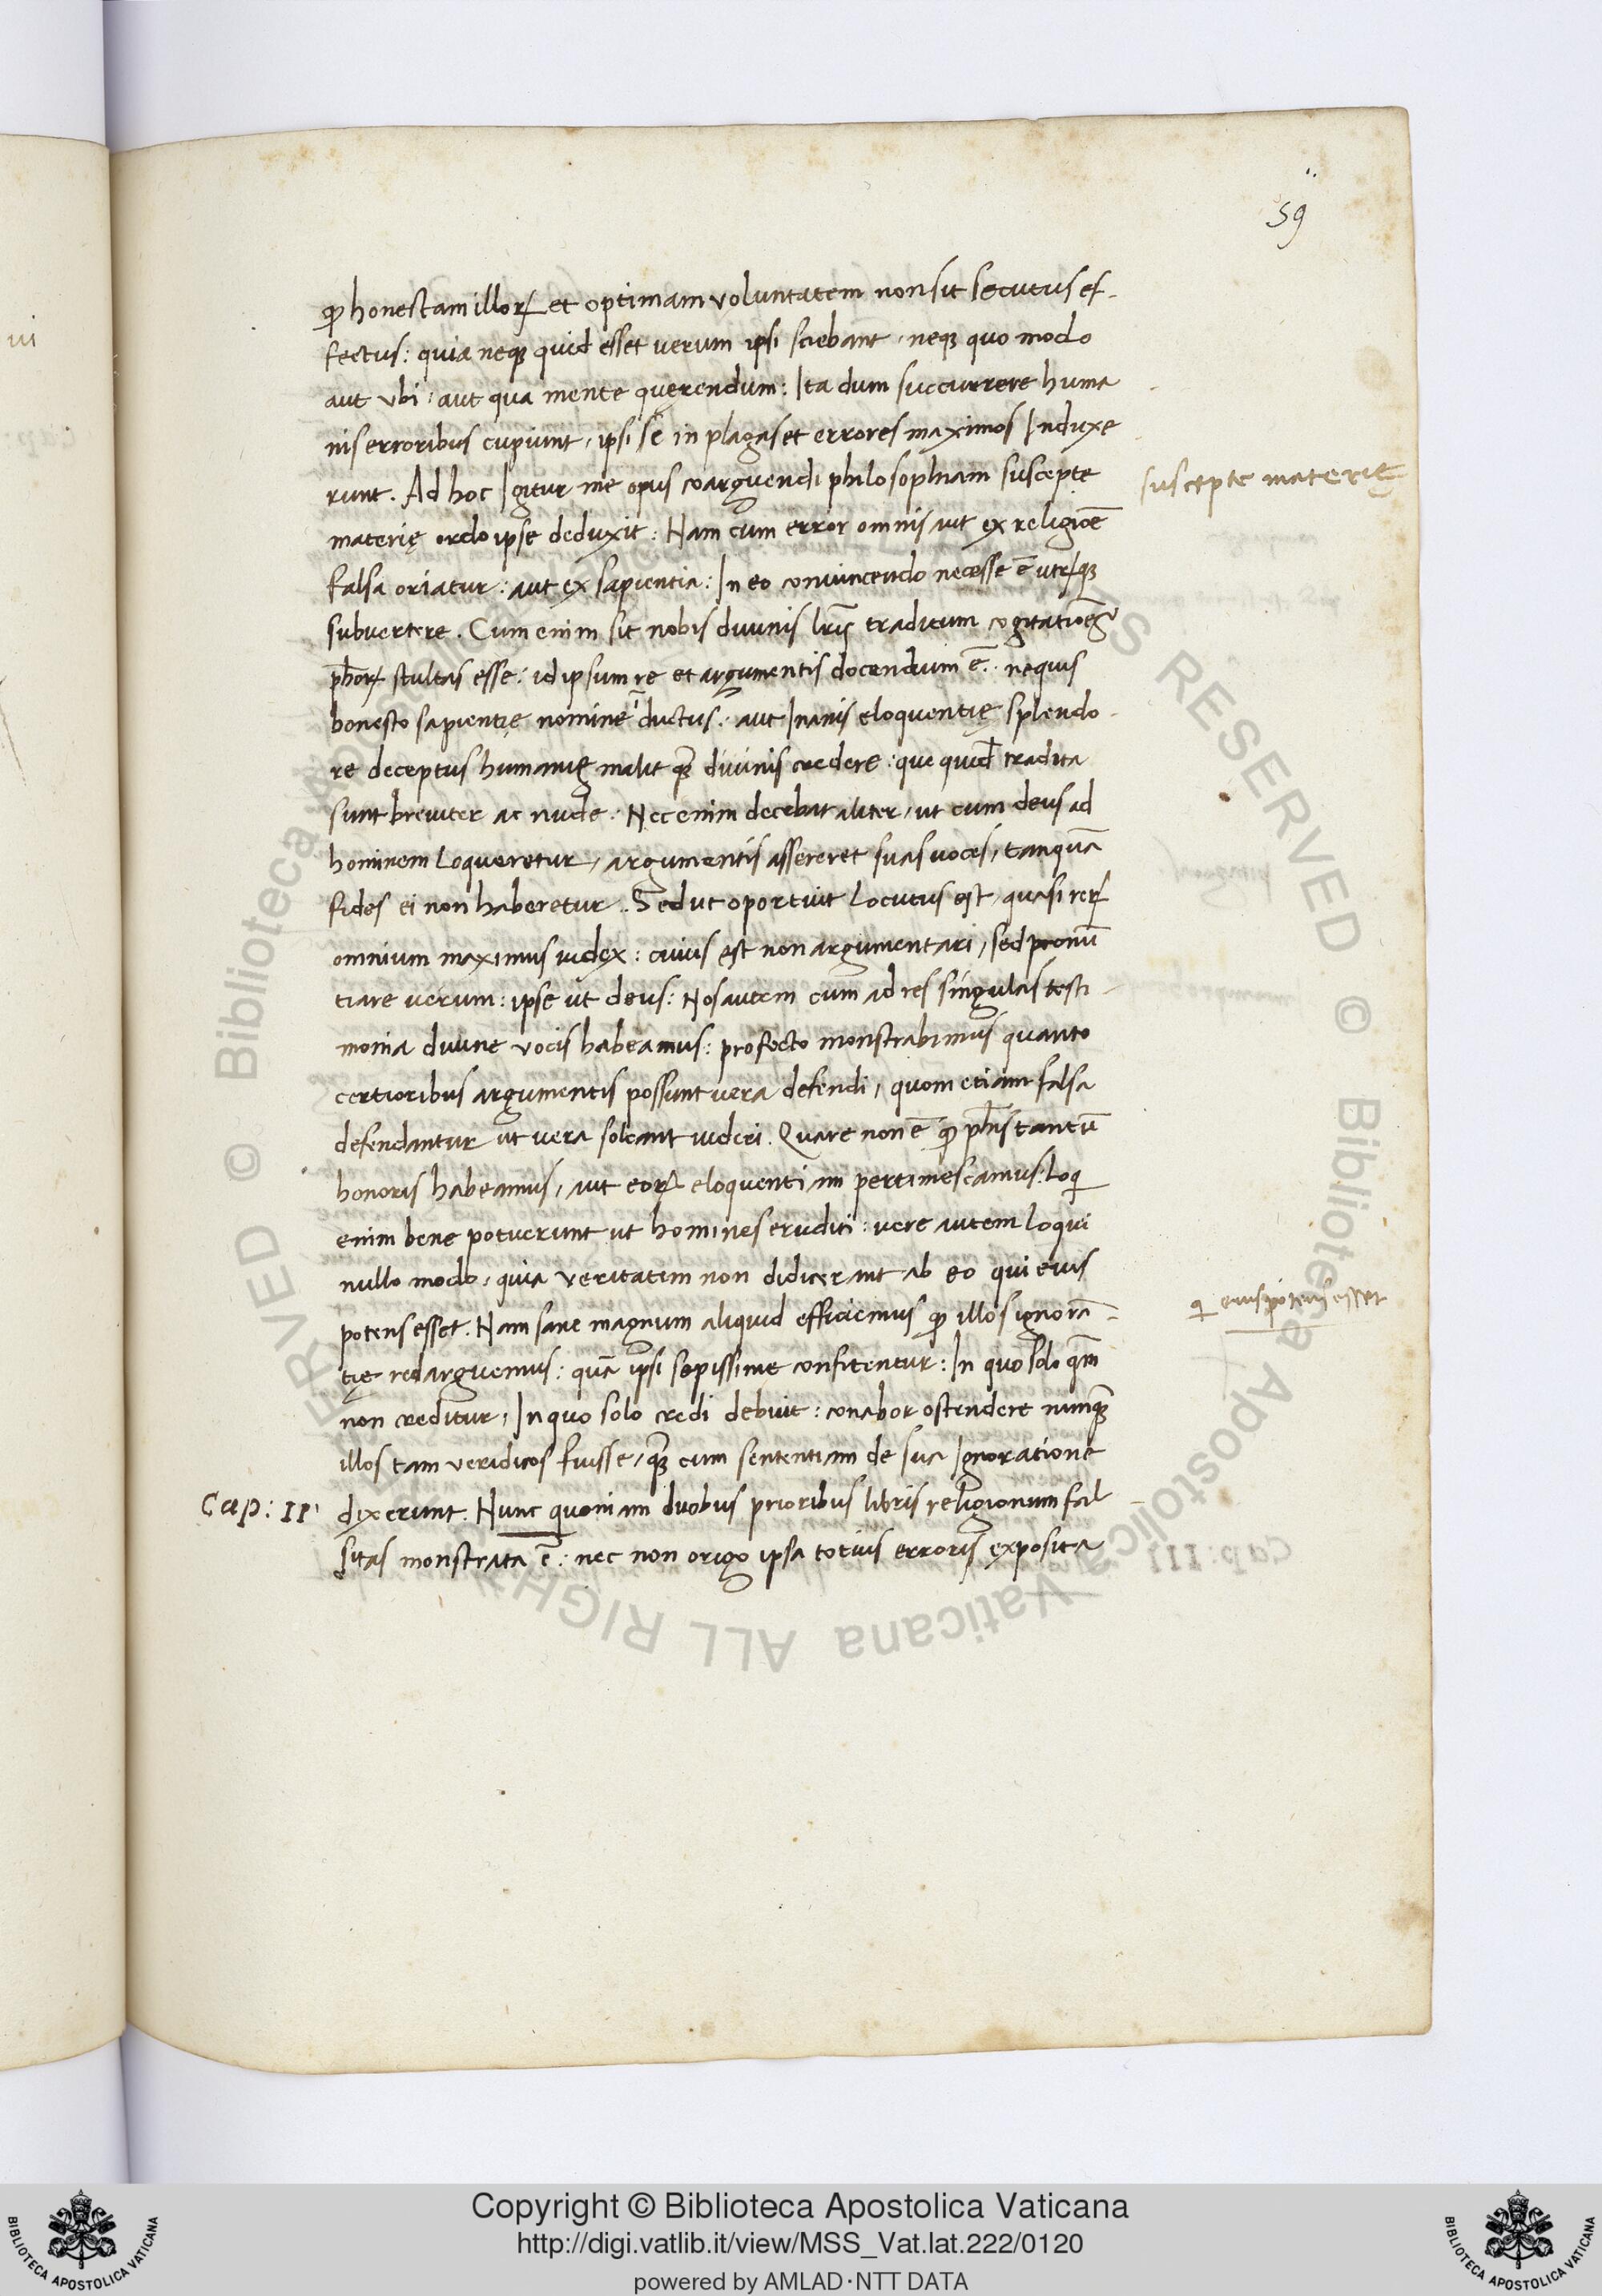 59
ꝙ honestam illoꝝ et optimam voluntatem non sit secutus ef-
fectus: quia neqꝫ quid esset verum ipsi sciebant, neqꝫ quo modo
aut vbi, aut qua mente querendum: Ita dum succurrere huma
nis erroribus cupiunt, ipsi se in plagas et errores maximos Induxe
runt. Ad hoc Igitur me opus coarguendi philosophiam suscepte
suscepte materię
materię ordo ipse deduxit: Nam cum error omnis aut ex religiōe
falsa oriatur: aut ex sapientia: In eo conuincendo necesse ē utrāqꝫ
subvertere. Cum enim sit nobis diuinis lr̄is traditum cogitatiōes
ph̄oꝝ stultas esse: id ipsum re et argumentis docendum ē: nequis
honesto sapientię nomine īductus: aut Inanis eloquentię splendo-
re deceptus humanis malit qꝫ̄ diuinis credere: que quid̄ tradita
sunt breuiter ac nude. Nec enim decebat aliter, ut cum deus ad
hominem loqueretur, argumentis assereret suas uoces, tanquā
fides ei non haberetur. Sed ut oportuit locutus est, quasi reꝝ
omnium maximus iudex: cuius est non argumentari, sed pronū
tiare verum: ipse ut deus: Nos autem cum ad res singulas testi-
monia diuine vocis habeamus: profecto monstrabimus quanto
certioribus argumentis possunt vera defendi, quom etiam falsa
defendantur ut vera soleant uideri. Quare non ē ꝙ ph̄is tantū
honoris habeamus, aut eoꝝ eloquentiam pertimescamus: loq̄
enim bene potuerunt ut homines eruditi: vere autem loqui
nullo modo, quia veritatem non didicerant ab eo qui eius
potens esset. Nam sane magnum aliquid efficiemus ꝙ illos ignorā-
qi eius potens esset
tię redarguemus: quā ipsi sepissime confitentur: In quo solo qm̄
non creditur, In quo solo credi debuit: conabor ostendere numqꝫ̄
illos tam veridicos fuisse, qꝫ̄ cum sententiam de sua Ignoratione
Cap: II
dixerunt. Nunc quoniam duobus prioribus libris religionum fal-
sitas monstrata ē: nec non origo ipsa totius erroris exposita
Copyright © Biblioteca Apostolica Vaticana
http://digi.vatlib.it/view/MSS_Vat.lat.222/0120
powered by AMLAD·NTT DATA
BIBLIOTECA APOSTOLICA VATICANA
BIBLIOTECA APOSTOLICA VATICANA